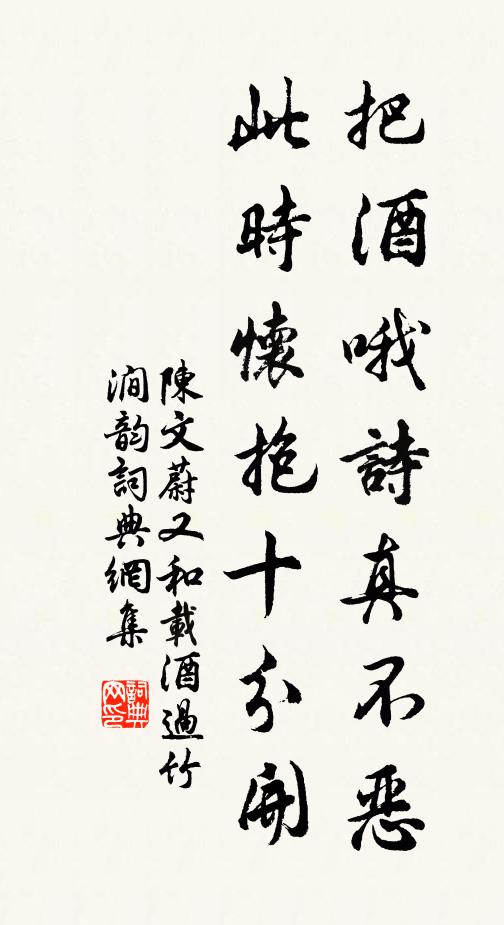 把酒哦詩真不惡
此時懷抱十分開
陳文蔚又和載酒過竹
澗韵詞典網集
詞典
网印